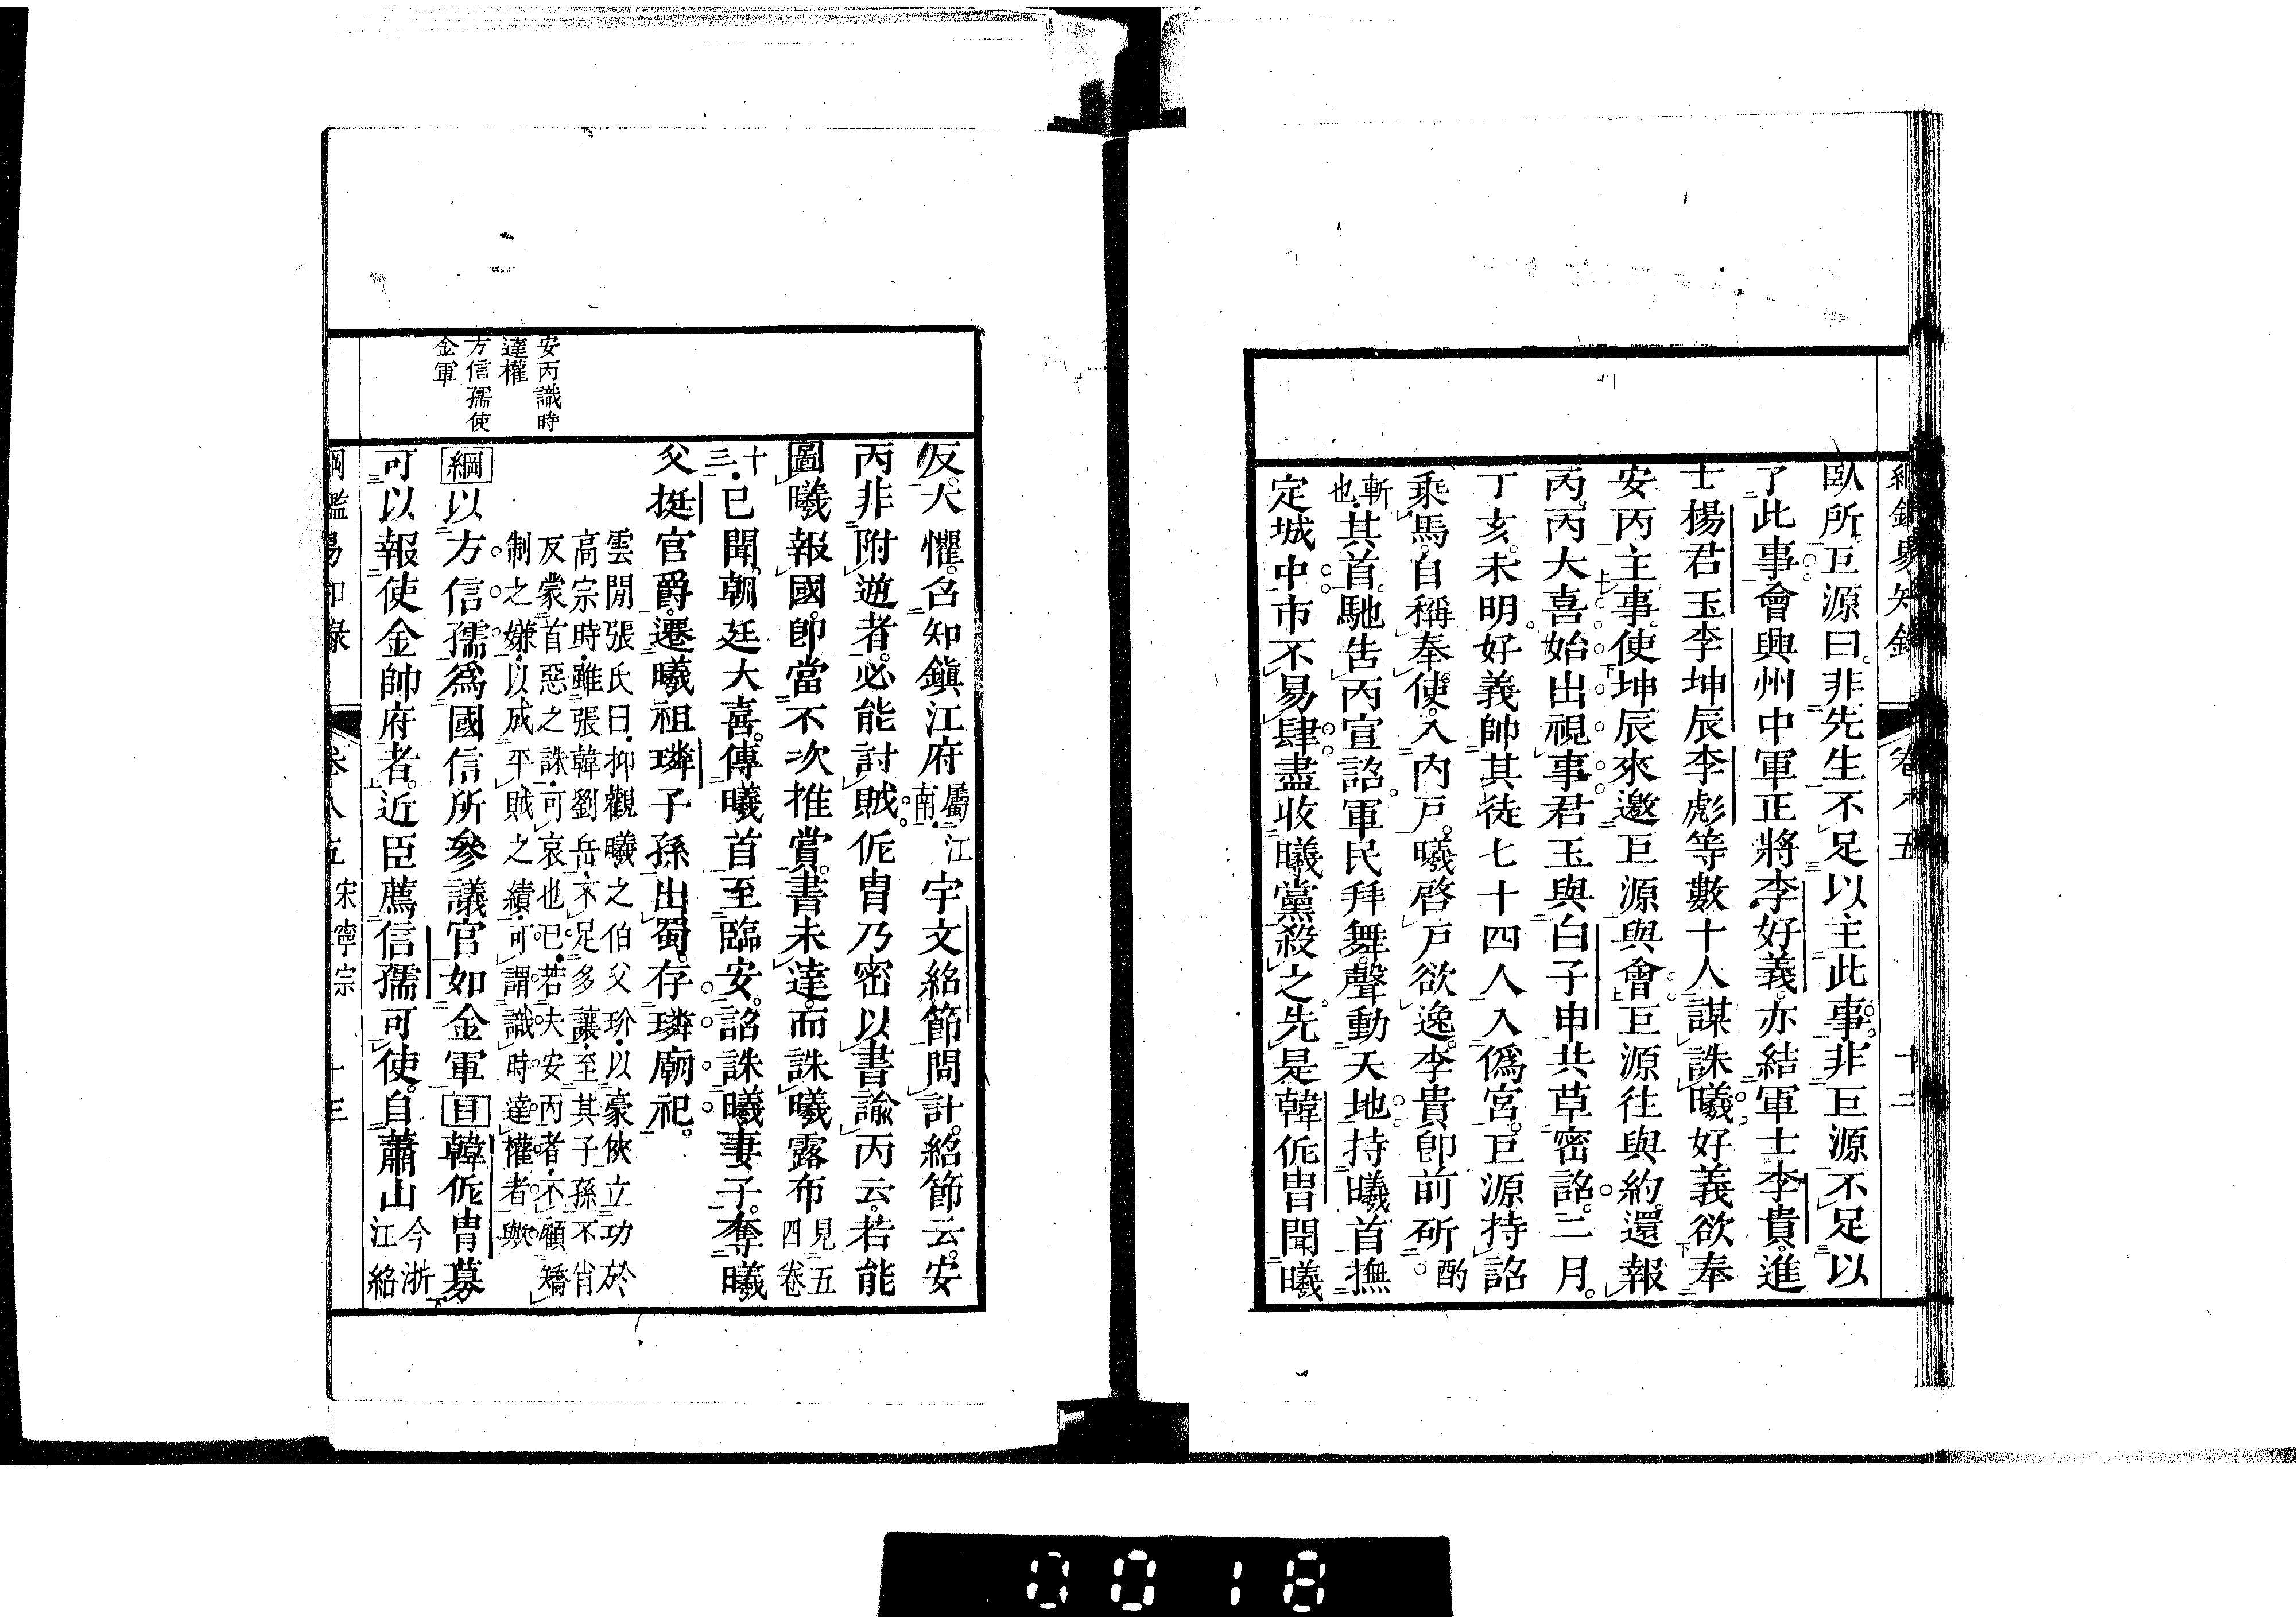 綱鑑易知錄 卷八五 十二
臥所。巨源曰。非先生不足以主此事。非巨源不足以
了此事。會興州中軍正將李好義。亦結軍士李貴。進
士楊君玉李坤辰李彪等數十人謀誅曦。好義欲奉
安丙主事。使坤辰來邀巨源與會。巨源往與約。還報
丙。丙大喜。始出視事。君玉與白子申共草密詔。二月。
丁亥。未明。好義帥其徒七十四人入僞宮。巨源持詔
乘馬。自稱奉使。入內戶。曦啓戶欲逸。李貴卽前斫酌。
斬也。其首。馳告丙宣詔。軍民拜舞。聲動天地。持曦首撫
定城中。市不易肆。盡收曦黨殺之。先是韓侂胄聞曦
反。大懼。召知鎭江府屬江南。宇文紹節問計。紹節云。安
丙非附逆者。必能討賊。侂胄乃密以書諭丙云。若能
圖曦報國。卽當不次推賞。書未達。而誅曦露布見五四卷
十三。已聞。朝廷大喜。傳曦首至臨安。詔誅曦妻子。奪曦
父挺官爵。遷曦祖璘子孫出蜀。存璘廟祀。
雲閒張氏曰。抑觀曦之伯父玠。以豪俠立功於
高宗時。雖張韓劉岳。不足多讓。至其子孫不肖
反蒙首惡之誅。可哀也已。若夫安丙者。不顧矯
制之嫌。以成平賊之績。可謂識時達權者歟
綱以方信孺爲國信所參議官。如金軍目韓侂胄募
可以報使金帥府者。近臣薦信孺可使。自蕭山今浙江紹
綱鑑易知錄 卷八五 宋寧宗 十三
安丙識時
達權
方信孺使
金軍
0018